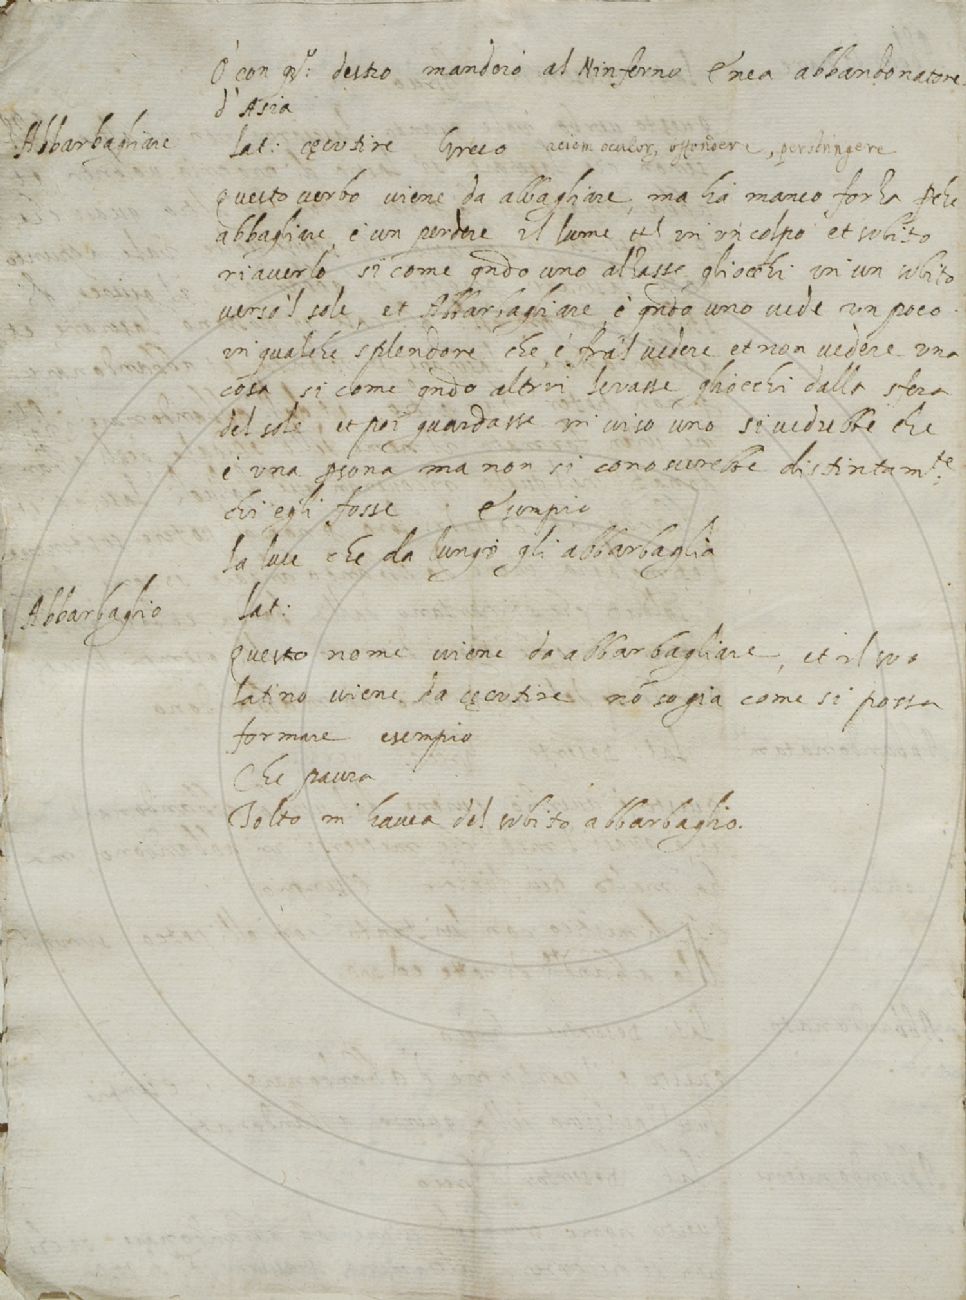 O con q.: destro mandoiò al Ninferno Enea abbandonatore
d'Asia
Abbarbagliare lat: cęcutire Greco aciem oculor, offondere, perstringere
Questo verbo viene da abbagliare, ma ha manco forza perche
abbagliare, è un perdere il lume et in un colpo et subito
riaverlo si come qndo uno alzasse gliocchi in un subito
verso'l sole, et Abbarbagliare è qndo uno vede un poco
in qualche splendore che è fra'l vedere et non vedere una
cosa si come qndo altrui levasse gliocchi dalla sfera
del sole et poi guardasse in viso uno si vedrebbe che
è una psona ma non si conoscerebbe distintam.te
chi egli fosse Esempio
la luce che da lungi gli abbarbaglia
Abbarbaglio lat:
Questo nome viene da abbarbagliare, et il suo
latino viene da cęcutire nō so gia come si possa
formare esempio
Che paura
Tolto m'havea del subito abbarbaglio.